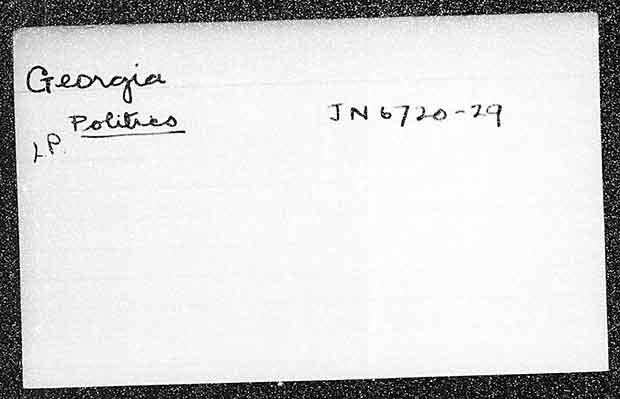 Georgia
Politics JN6720-29
LP.